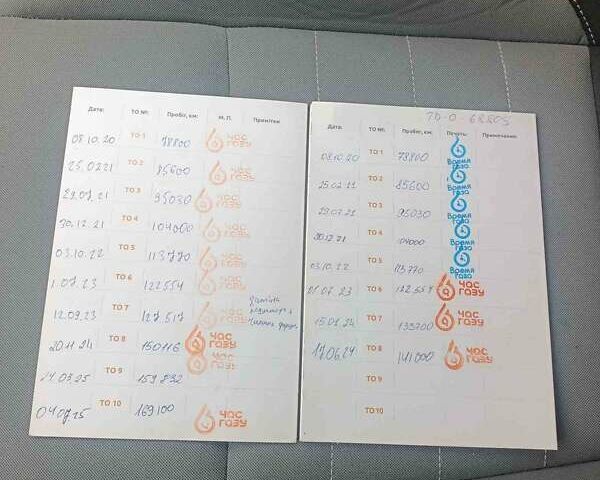 Дата: ТО №: Пробіг, км: М. П. Примітки
08.10.20 ТО 1 78800 ЧАС ГАЗУ
25.02.21 ТО 2 85600 ЧАС ГАЗУ
29.07.21 ТО 3 95030 ЧАС ГАЗУ
30.12.21 ТО 4 104000 ЧАС ГАЗУ
03.10.22 ТО 5 113770 ЧАС ГАЗУ
1.07.23 ТО 6 122554 ЧАС ГАЗУ
12.09.23 ТО 7 127517 ЧАС ГАЗУ
20.11.24 ТО 8 150116 ЧАС ГАЗУ
24.03.25 ТО 9 159832 ЧАС ГАЗУ
04.07.25 ТО 10 169100 ЧАС ГАЗУ
ТО-0-68803
Дата: ТО №: Пробег, км: Печать: Примечания:
08.10.20 ТО 1 78800 Время газа
25.02.21 ТО 2 85600 Время газа
29.07.21 ТО 3 95030 Время газа
30.12.21 ТО 4 104000 Время газа
03.10.22 ТО 5 113770 Время газа
01.07.23 ТО 6 122554 ЧАС ГАЗУ
15.01.24 ТО 7 133700 ЧАС ГАЗУ
17.06.24 ТО 8 141000 ЧАС ГАЗУ
ТО 9
ТО 10